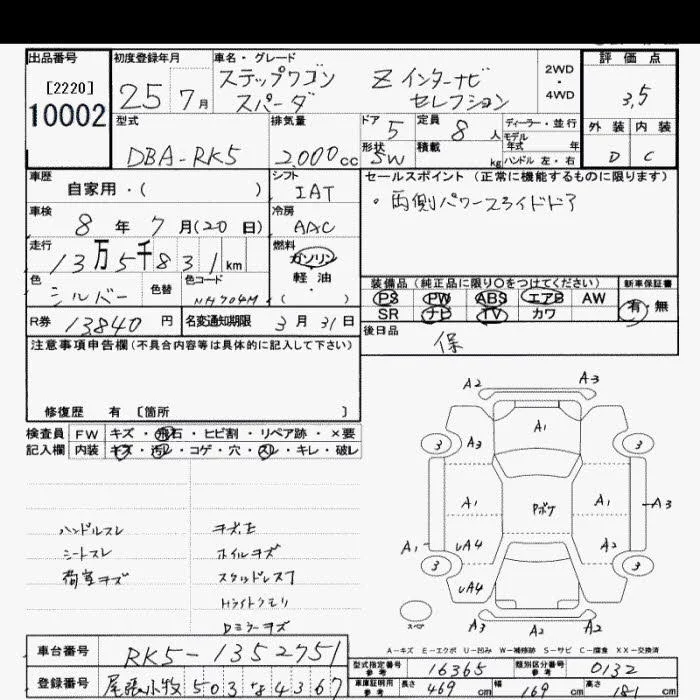 出品番号
[2220]
10002
初度登録年月
25年 7月
車名・グレード
ステップワゴン Z インターナビ
スパーダ セレクション
2WD
・
4WD
評価点
3.5
外装 内装
D C
型式
DBA-RK5
排気量
2,000cc
ドア 5
形状 SW
定員 8人
積載 kg
ディーラー・並行
モデル
年式 年
ハンドル 左・右
車歴
自家用・( )
シフト
IAT
車検
8年 7月(20日)
冷房
AAC
走行
13万5千831km
燃料
ガソリン
軽油
・( )
色
シルバー
色替
色コード
NH704M
R券 13840円
名変通知期限 3月31日
セールスポイント(正常に機能するものに限ります)
・両側パワースライドドア
装備品(純正品に限り〇をつけてください)
PS PW ABS エアB AW
SR ナビ TV カワ
新車保証書
有・無
後日品
保
注意事項申告欄(不具合内容等は具体的に記入して下さい)
修復歴 有 [箇所 ]
検査員 FW キズ・飛石・ヒビ割・リペア跡・×要
記入欄 内装 キズ・汚レ・コゲ・穴・スレ・キレ・破レ
ハンドルスレ
シートスレ ホイルキズ
荷室キズ スタッドレス
Hライトクモリ
Dミラーキズ
A2 A3
A1
3 A3 3
A1 A1 A3
Pボケ
A1 UA4 A2
3 3
UA4
スペア
A3 A2 A2
A-キズ E-エクボ U-凹み W-補修跡 S-サビ C-腐食 XX-交換済
車台番号 RK5-1352751
登録番号 尾張小牧 503 す 4367
型式指定番号 参考 16365
類別区分番号 参考 0132
車庫証明用 参考 長さ 469cm 幅 169cm 高さ 181cm